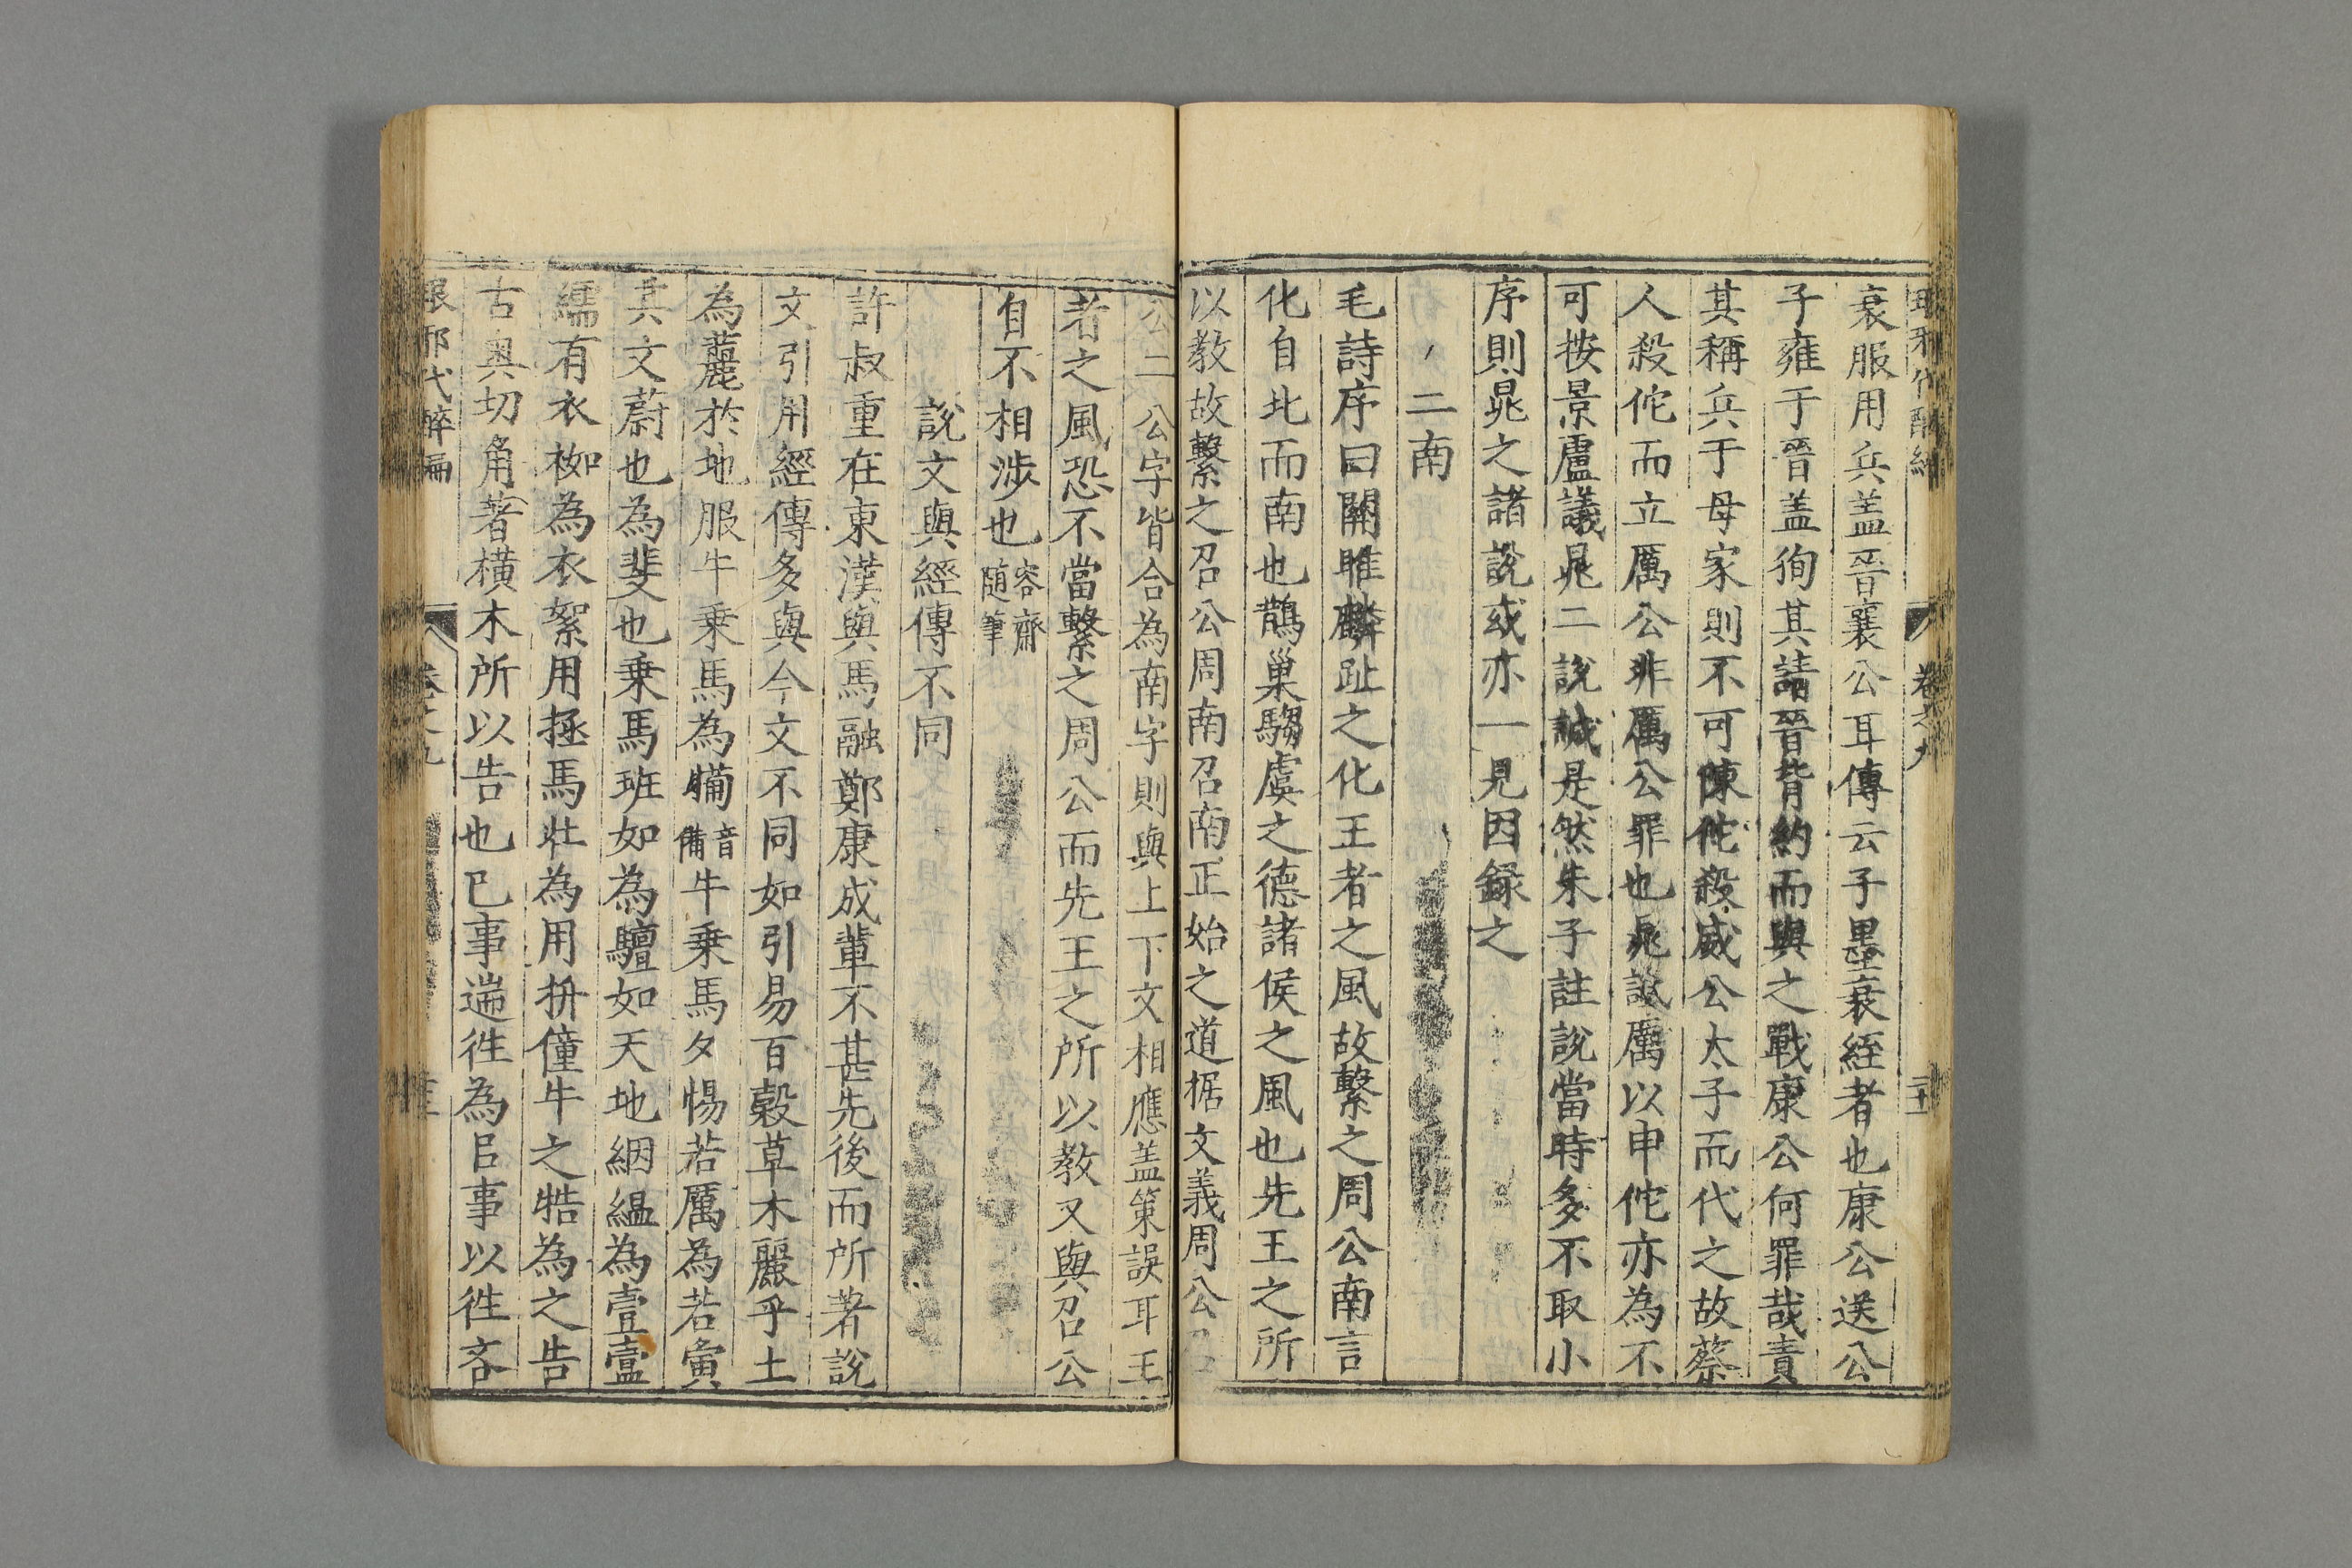 衰服用兵盖晉襄公耳傳云子墨衰絰者也康公送公
子雍于晉盖徇其請晉背約而與之戰康公何罪哉責
其稱兵于母家則不可陳佗殺威公太子而代之故蔡
人殺佗而立厲公非厲公罪也晁詆厲以申佗亦為不
可按景盧議晁二說誠是然朱子註說當時多不取小
序則晁之諸說或亦一見因録之
二南
毛詩序曰關雎麟趾之化王者之風故繫之周公南言
化自北而南也鵲巢騶虞之德諸侯之風也先王之所
以教故繫之召公周南召南正始之道据文義周公召
公二公字皆合為南字則與上下文相應盖策誤耳王
者之風恐不當繫之周公而先王之所以教又與召公
自不相涉也容齋隨筆
說文與經傳不同
許叔重在東漢與馬融鄭康成輩不甚先後而所著說
文引用經傳多與今文不同如引易百穀草木麗乎土
為䕻於地服牛乘馬為犕音備牛乘馬夕惕若厲為若夤
其文蔚也為斐也乘馬班如為驙如天地絪縕為壹壼
繻有衣袽為衣絮用拯馬壯為用抍僮牛之牿為之告
古奥切角著横木所以告也巳事遄徃為㠯事以徃吝
琅邪代醉編
卷之九